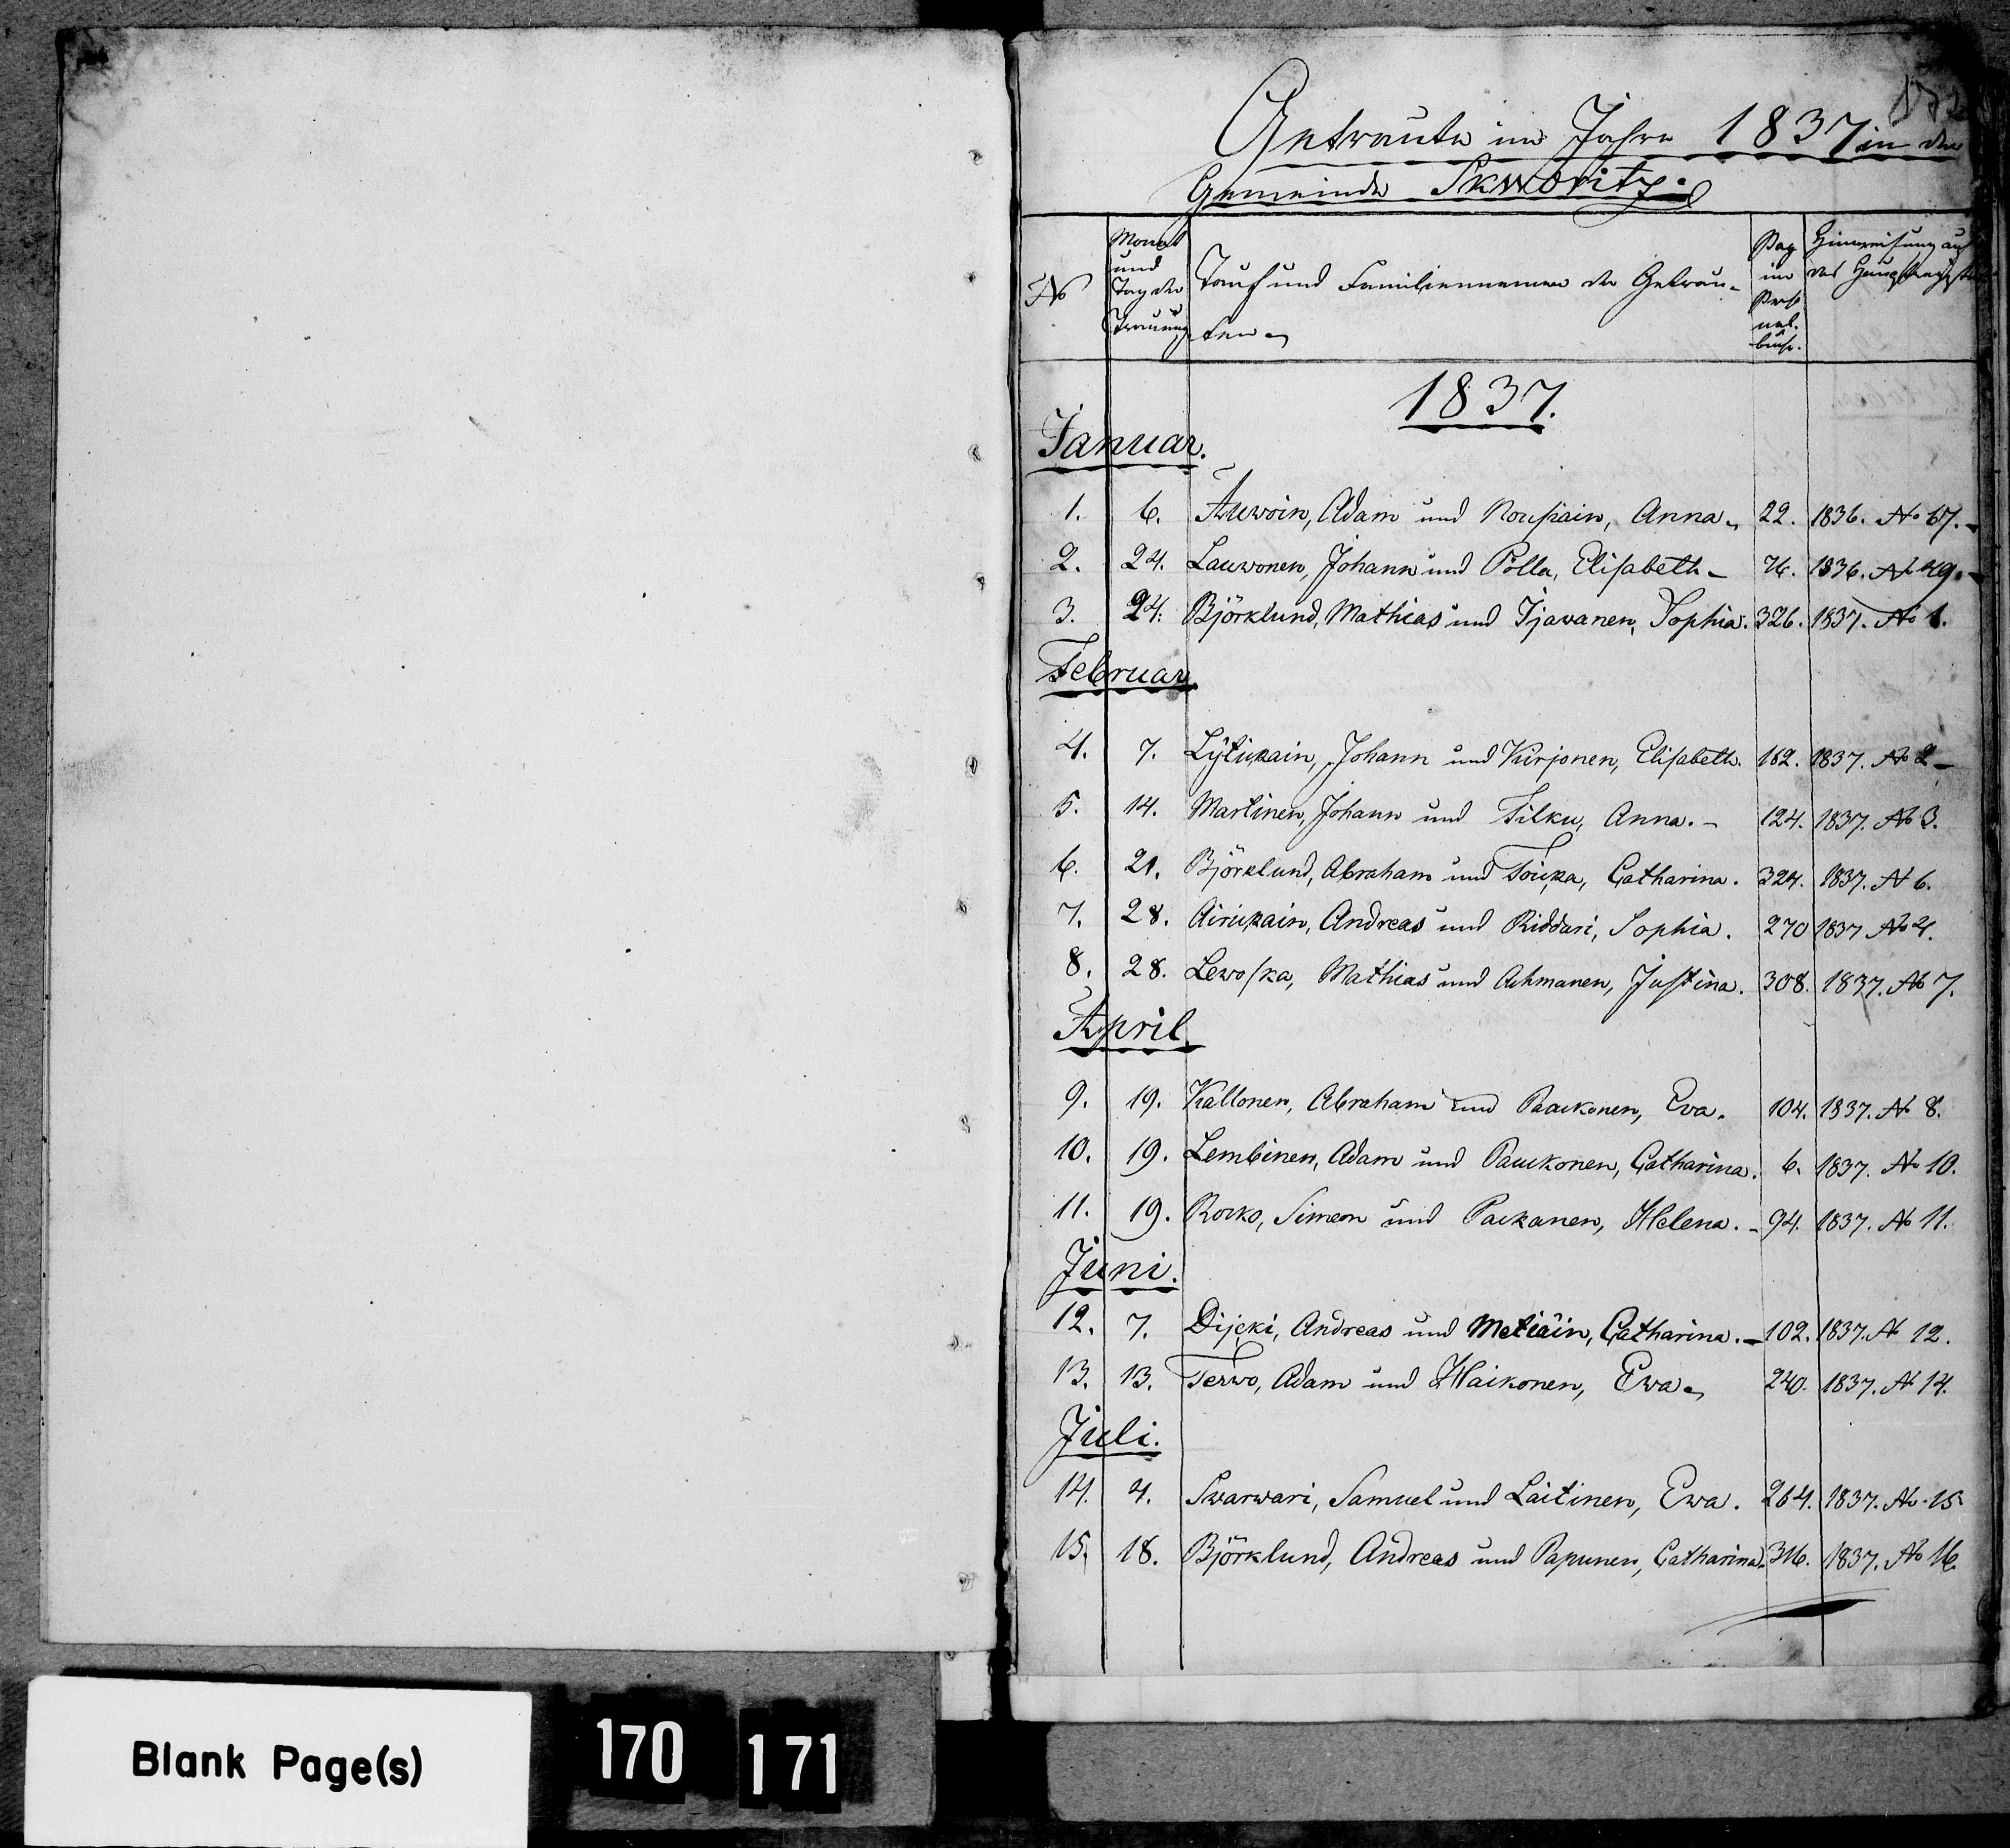 Getraute im Jahre 1837 in der
Gemeinde Skworitz.
No
Monat und Tag der Trauung
Tauf und Familiennamen der Getrau-
ten
Pag im Perso nal. buche.
Hinweisung auf das Hauptregister
1837.
Januar.
1. 6. Auwoin, Adam und Roußain, Anna. 22. 1836. No 67.
2. 24. Lauwonen, Johann und Pölla, Elisabeth 76. 1836. No 49.
3. 24. Björklund, Mathias und Tjawanen, Sophia. 326. 1837. No 1.
Februar.
4. 7. Lÿtiukain, Johann und Kirjonen, Elisabeth. 162. 1837. No 2
5. 14. Martinen, Johann und Tilku, Anna. 124. 1837. No 3.
6. 21. Björklund, Abraham und Toiuka, Catharina. 324. 1837. No 6.
7. 28. Airiukain, Andreas und Riddari, Sophia. 270 1837 No 4.
8. 28. Lewoska, Mathias und Ahmanen, Justina. 308. 1837. No 7.
April.
9. 19. Kallonen, Abraham und Paaukonen, Eva. 104. 1837. No 8.
10. 19. Lembinen, Adam und Paukonen, Catharina. 6. 1837. No 10.
11. 19. Rouko, Simeon und Paukanen, Helena. 94. 1837. No 11.
Juni.
12. 7. Dijeki, Andreas und Metiäin, Catharina. 102. 1837. No 12.
13. 13. Terwo, Adam und Haikonen, Ewa 240. 1837. No 14.
Juli.
14. 4. Swarwari, Samuel und Laitinen, Ewa. 264. 1837. No 15
15. 18. Björklund, Andreas und Papunen, Catharina. 316. 1837. No 16.
Blank Page(s)
170 171